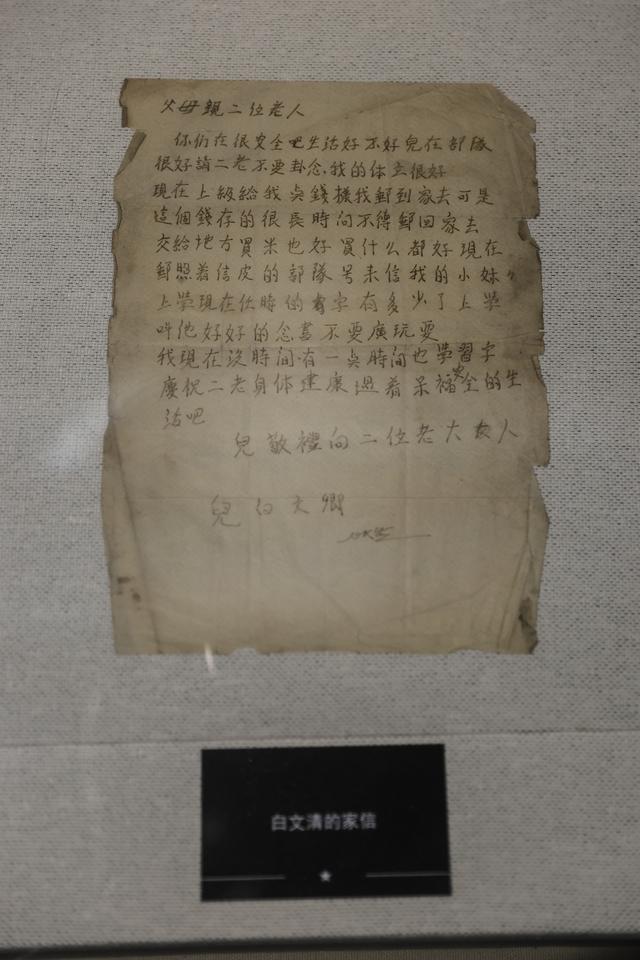 父母親二位老人
你們在很安全吧生活好不好兒在部隊
很好請二老不要卦念,我的体立很好
現在上級給我 錢機我郵到家去可是
這個錢存的很長時问不得郵回家去
交給地方買米也好買什么都好現在
郵照着信皮的部隊号未信我的小妹々
上學現在什時的 字有多少了上學
叫他好好的念書不要廣玩耍
我現在沒時間·有一 時間也學習字
慶祝二老身体建康過着 福安全的生
活吧
兒敬禮向二位老大人
兒白文卿
白文清的家信